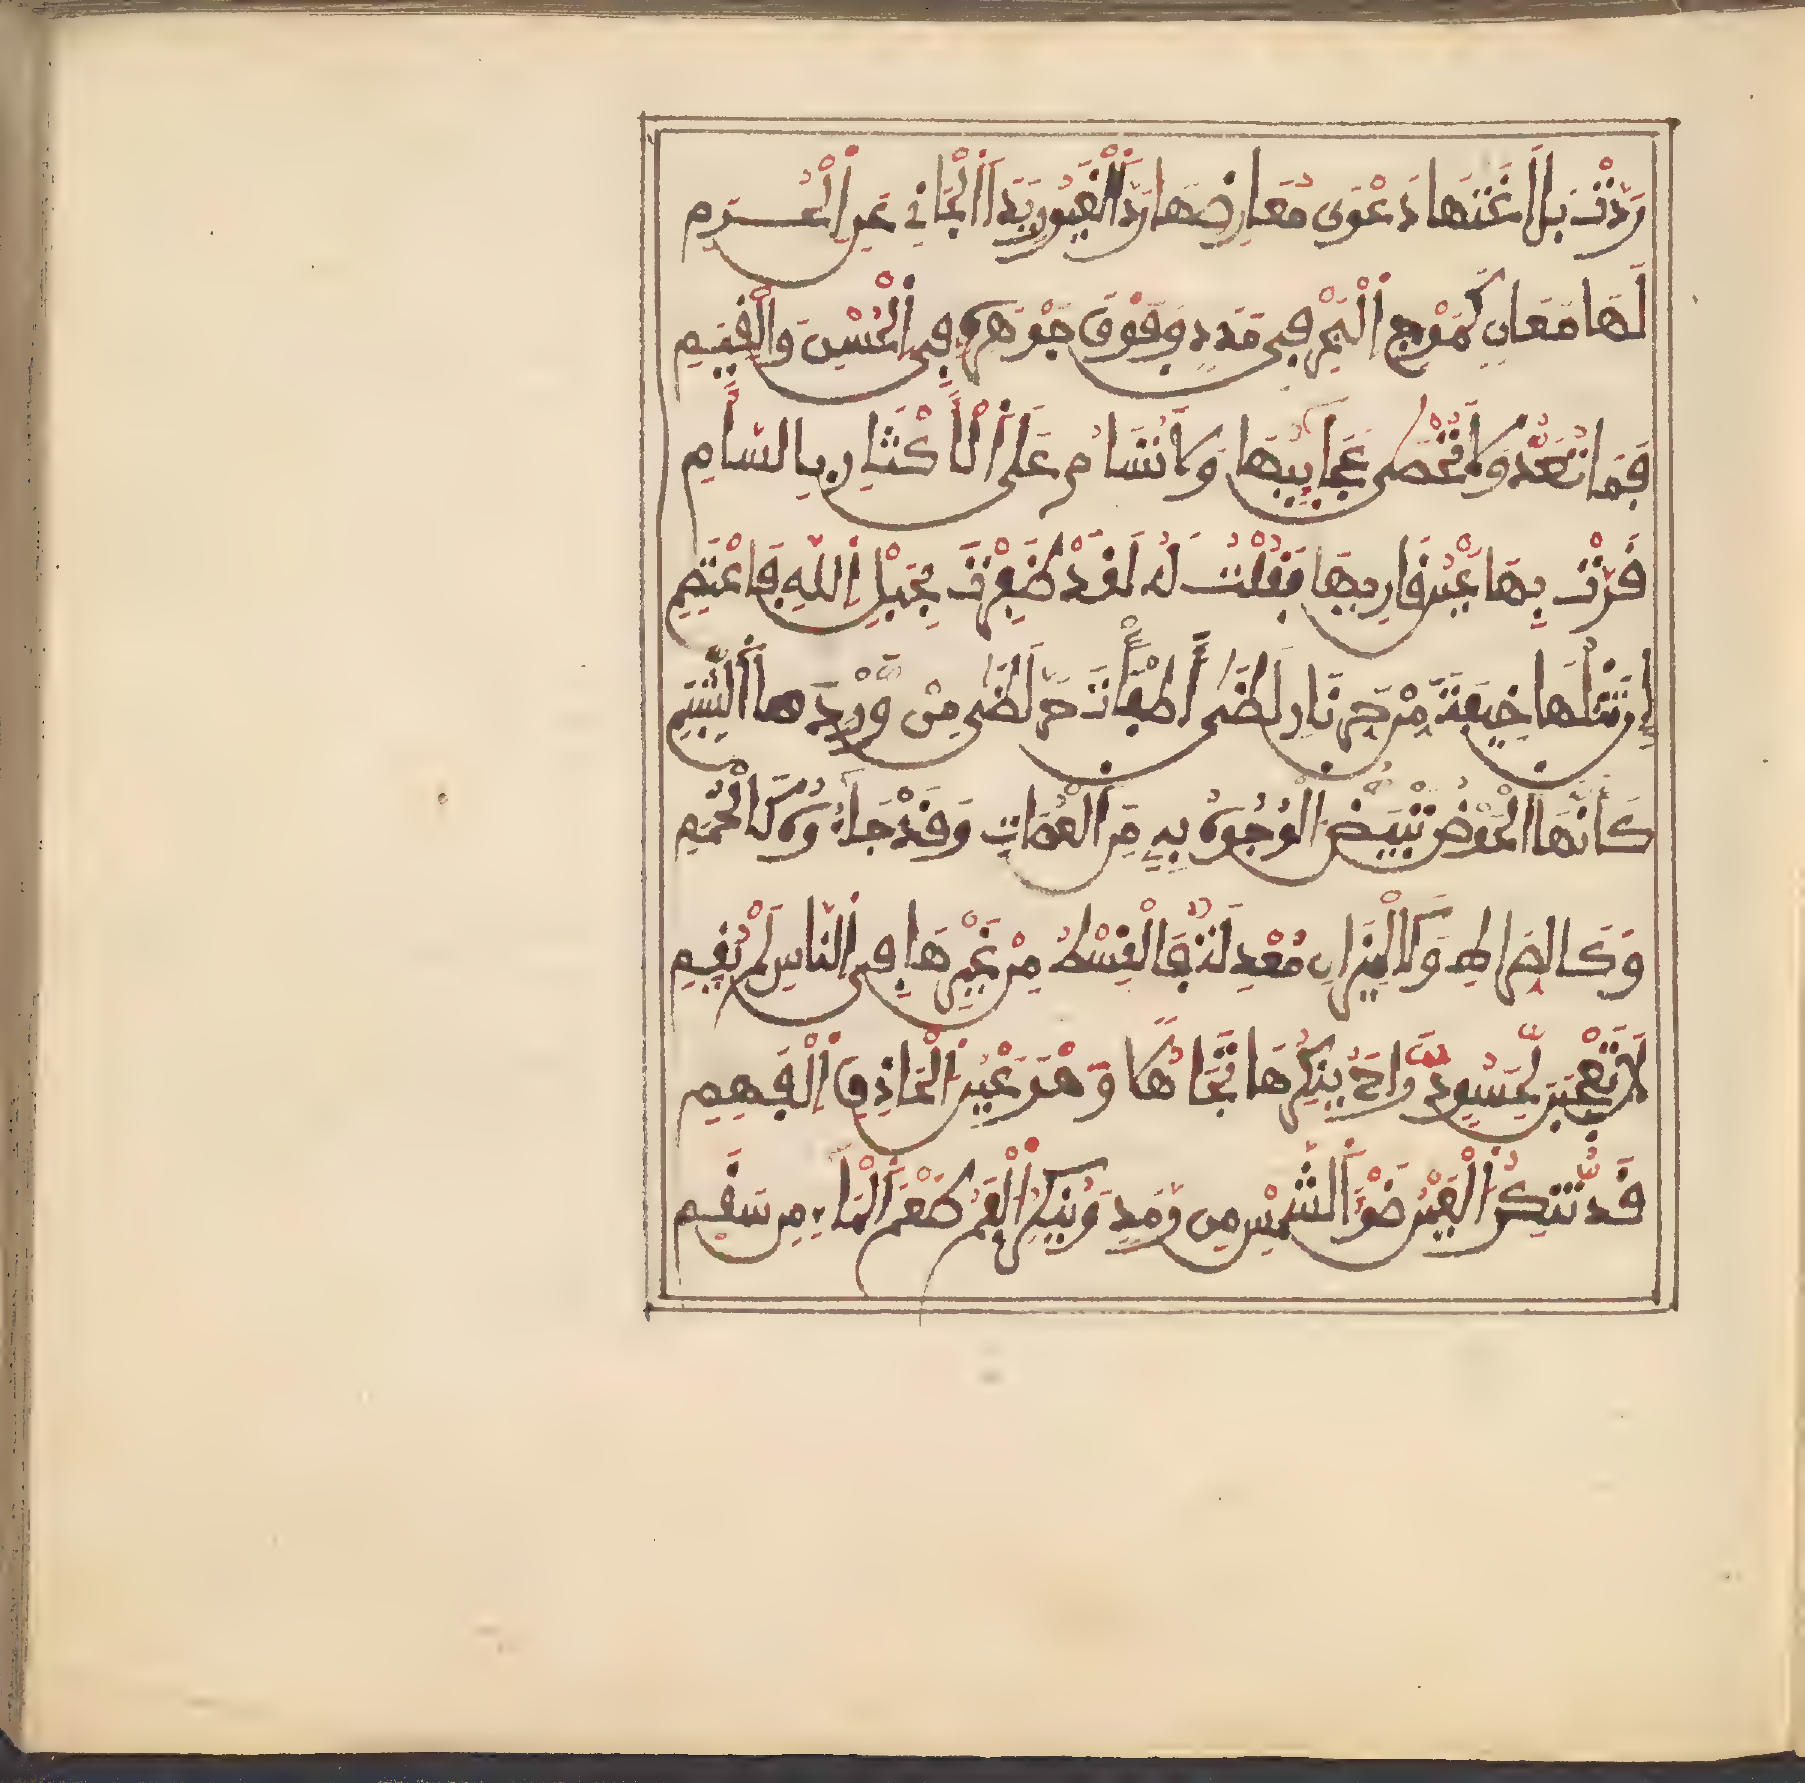 رَدَّتْ بَلَاغَتُهَا دَعْوَى مُعَارِضِهَا رَدَّ الْغَيُورِ يَدَ الْجَانِي عَنِ الْحُرَمِ
لَهَا مَعَانٍ كَمَوْجِ الْيَمِّ فِي مَدَدٍ وَفَوْقَ جَوْهَرِهِ فِي الْحُسْنِ وَالْقِيَمِ
فَمَا تُعَدُّ وَلَا تُحْصَى عَجَائِبُهَا وَلَا تُسَامُ عَلَى الْإِكْثَارِ بِالسَّأَمِ
قَرَّتْ بِهَا عَيْنُ قَارِيهَا فَقُلْتُ لَهُ لَقَدْ ظَفِرْتَ بِحَبْلِ اللَّهِ فَاعْتَصِمِ
إِنْ تَتْلُهَا خِيفَةً مِنْ حَرِّ نَارِ لَظَى أَطْفَأْتَ حَرَّ لَظَى مِنْ وِرْدِهَا الشَّبِمِ
كَأَنَّهَا الْحَوْضُ تَبْيَضُّ الْوُجُوهُ بِهِ مِنَ الْعُصَاتِ وَقَدْ جَاءُوهُ كَالْحُمَمِ
وَكَالصِّرَاطِ وَكَالْمِيزَانِ مَعْدِلَةً فَالْقِسْطُ مِنْ غَيْرِهَا فِي النَّاسِ لَمْ يَقُمِ
لَا تَعْجَبَنْ لِحَسُودٍ رَاحَ يُنْكِرُهَا تَجَاهُلًا وَهْوَ عَيْنُ الْحَاذِقِ الْفَهِمِ
قَدْ تُنْكِرُ الْعَيْنُ ضَوْءَ الشَّمْسِ مِنْ رَمَدٍ وَيُنْكِرُ الْفَمُ طَعْمَ الْمَاءِ مِنْ سَقَمِ